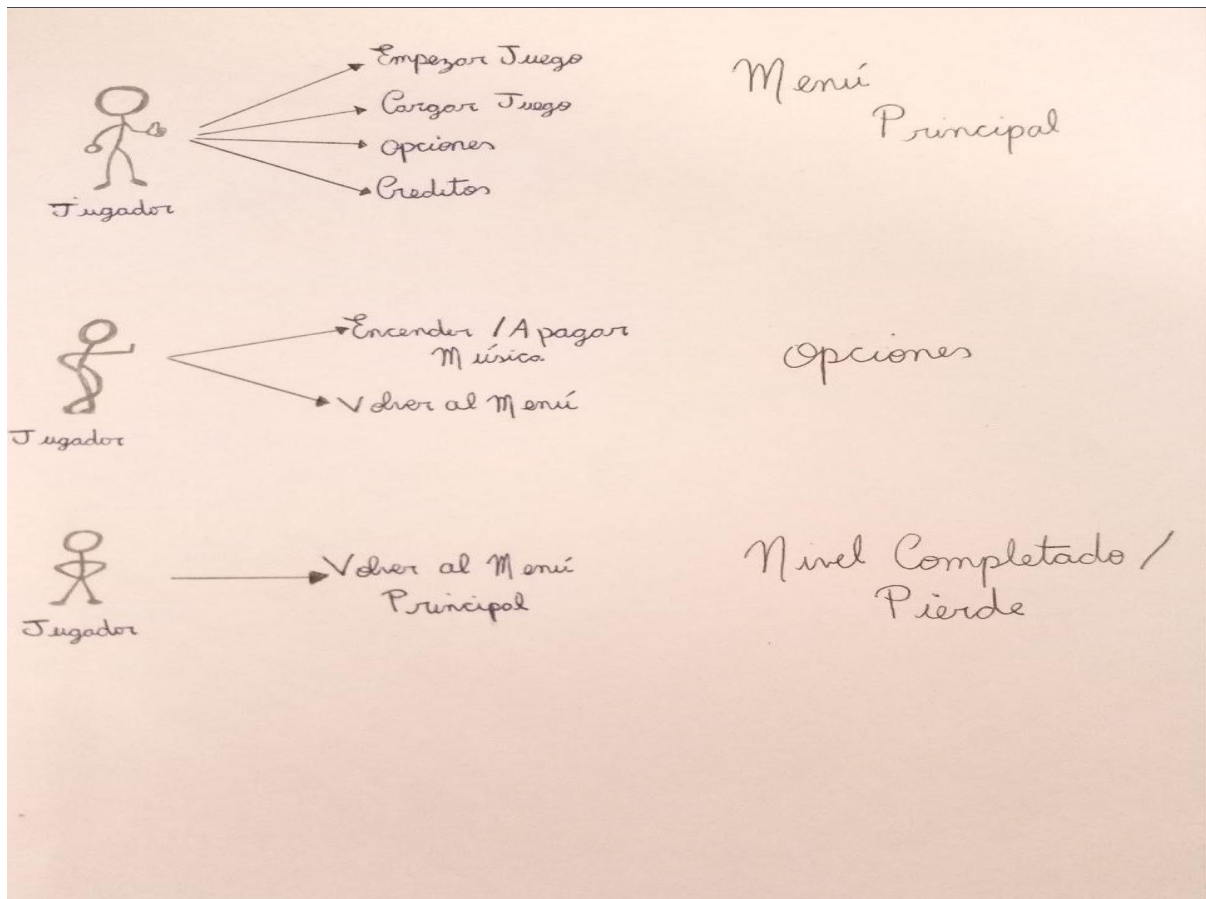 Empezar Juego
Cargar Juego
Opciones
Creditos
Jugador
Menú
Principal
Encender / Apagar
Música
Volver al Menú
Jugador
Opciones
Volver al Menú
Principal
Jugador
Nivel Completado /
Pierde